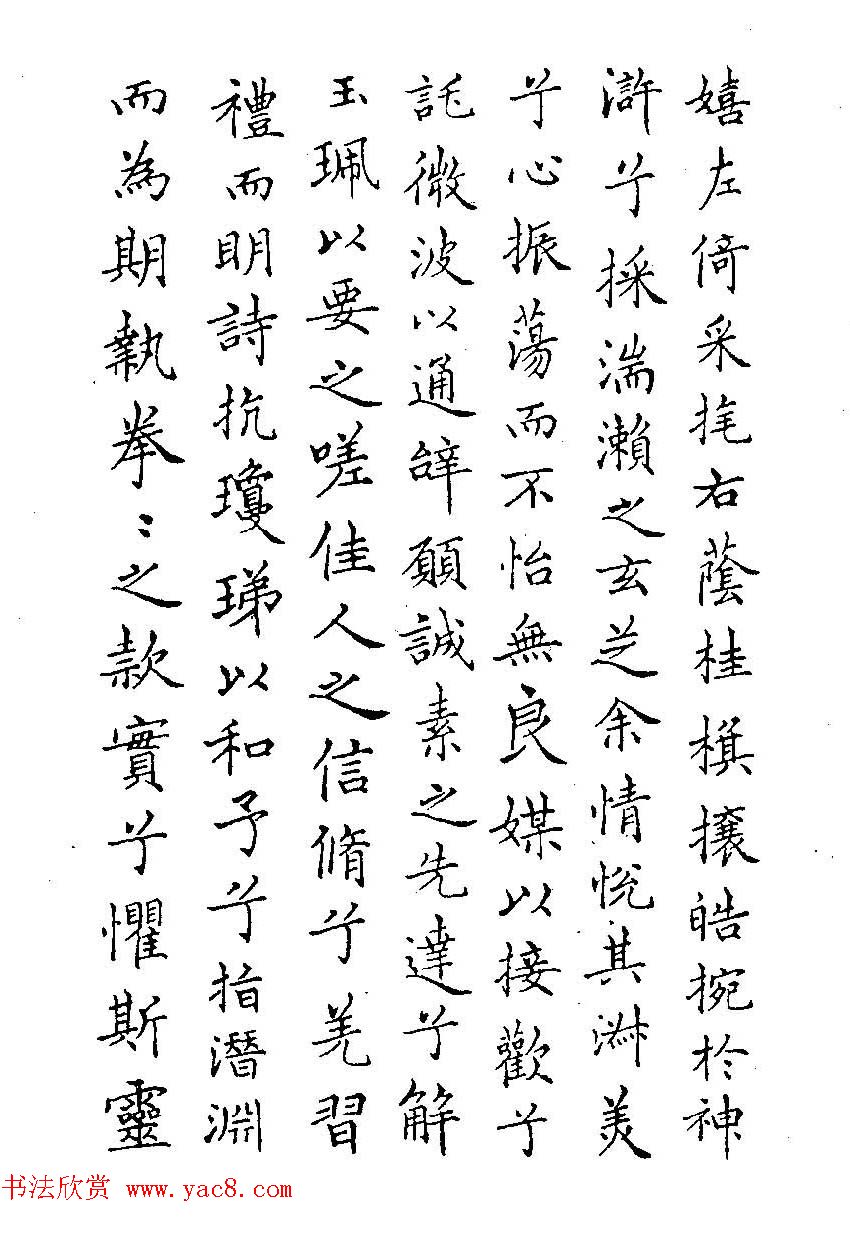 嬉左倚采旄右蔭桂旗攘皓捥於神
滸兮採湍瀨之玄芝余情悅其淑美
兮心振蕩而不怡無良媒以接歡兮
託微波以通辝願誠素之先達兮解
玉珮以要之嗟佳人之信脩兮羌習
禮而明詩抗瓊珶以和予兮指潛淵
而為期執拳〻之款實兮懼斯靈
书法欣赏 www.yac8.com